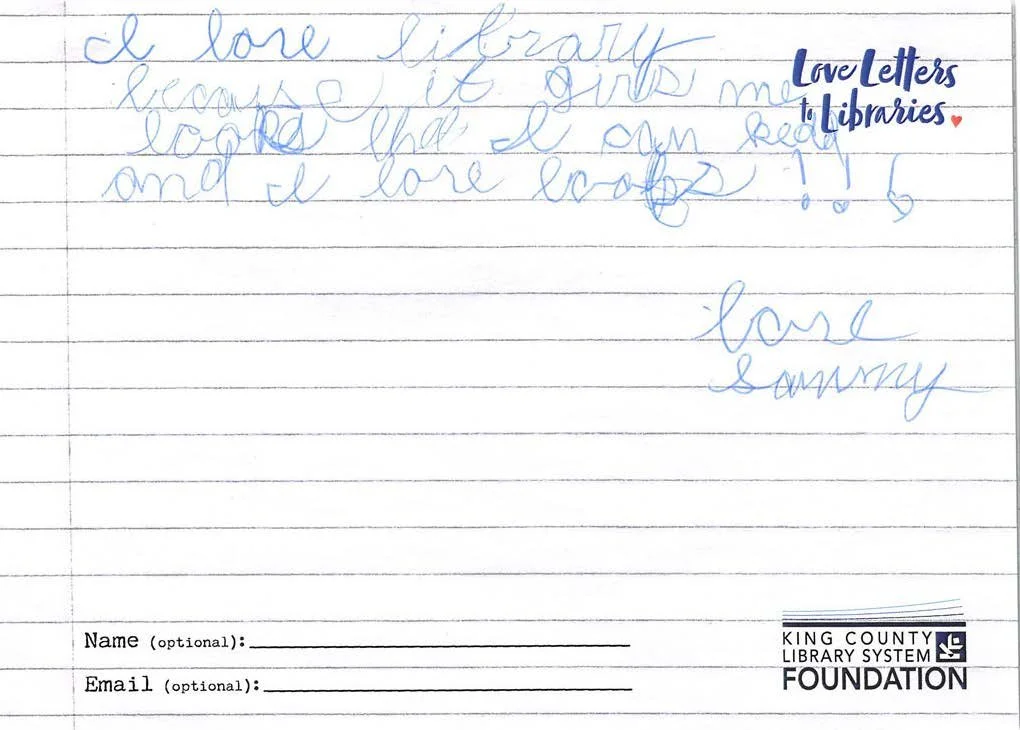 I love library
because it givs me
books tha I can read
and I love books !!!
Love
Sammy
Love Letters
to Libraries
Name (optional):
Email (optional):
KING COUNTY
LIBRARY SYSTEM
FOUNDATION